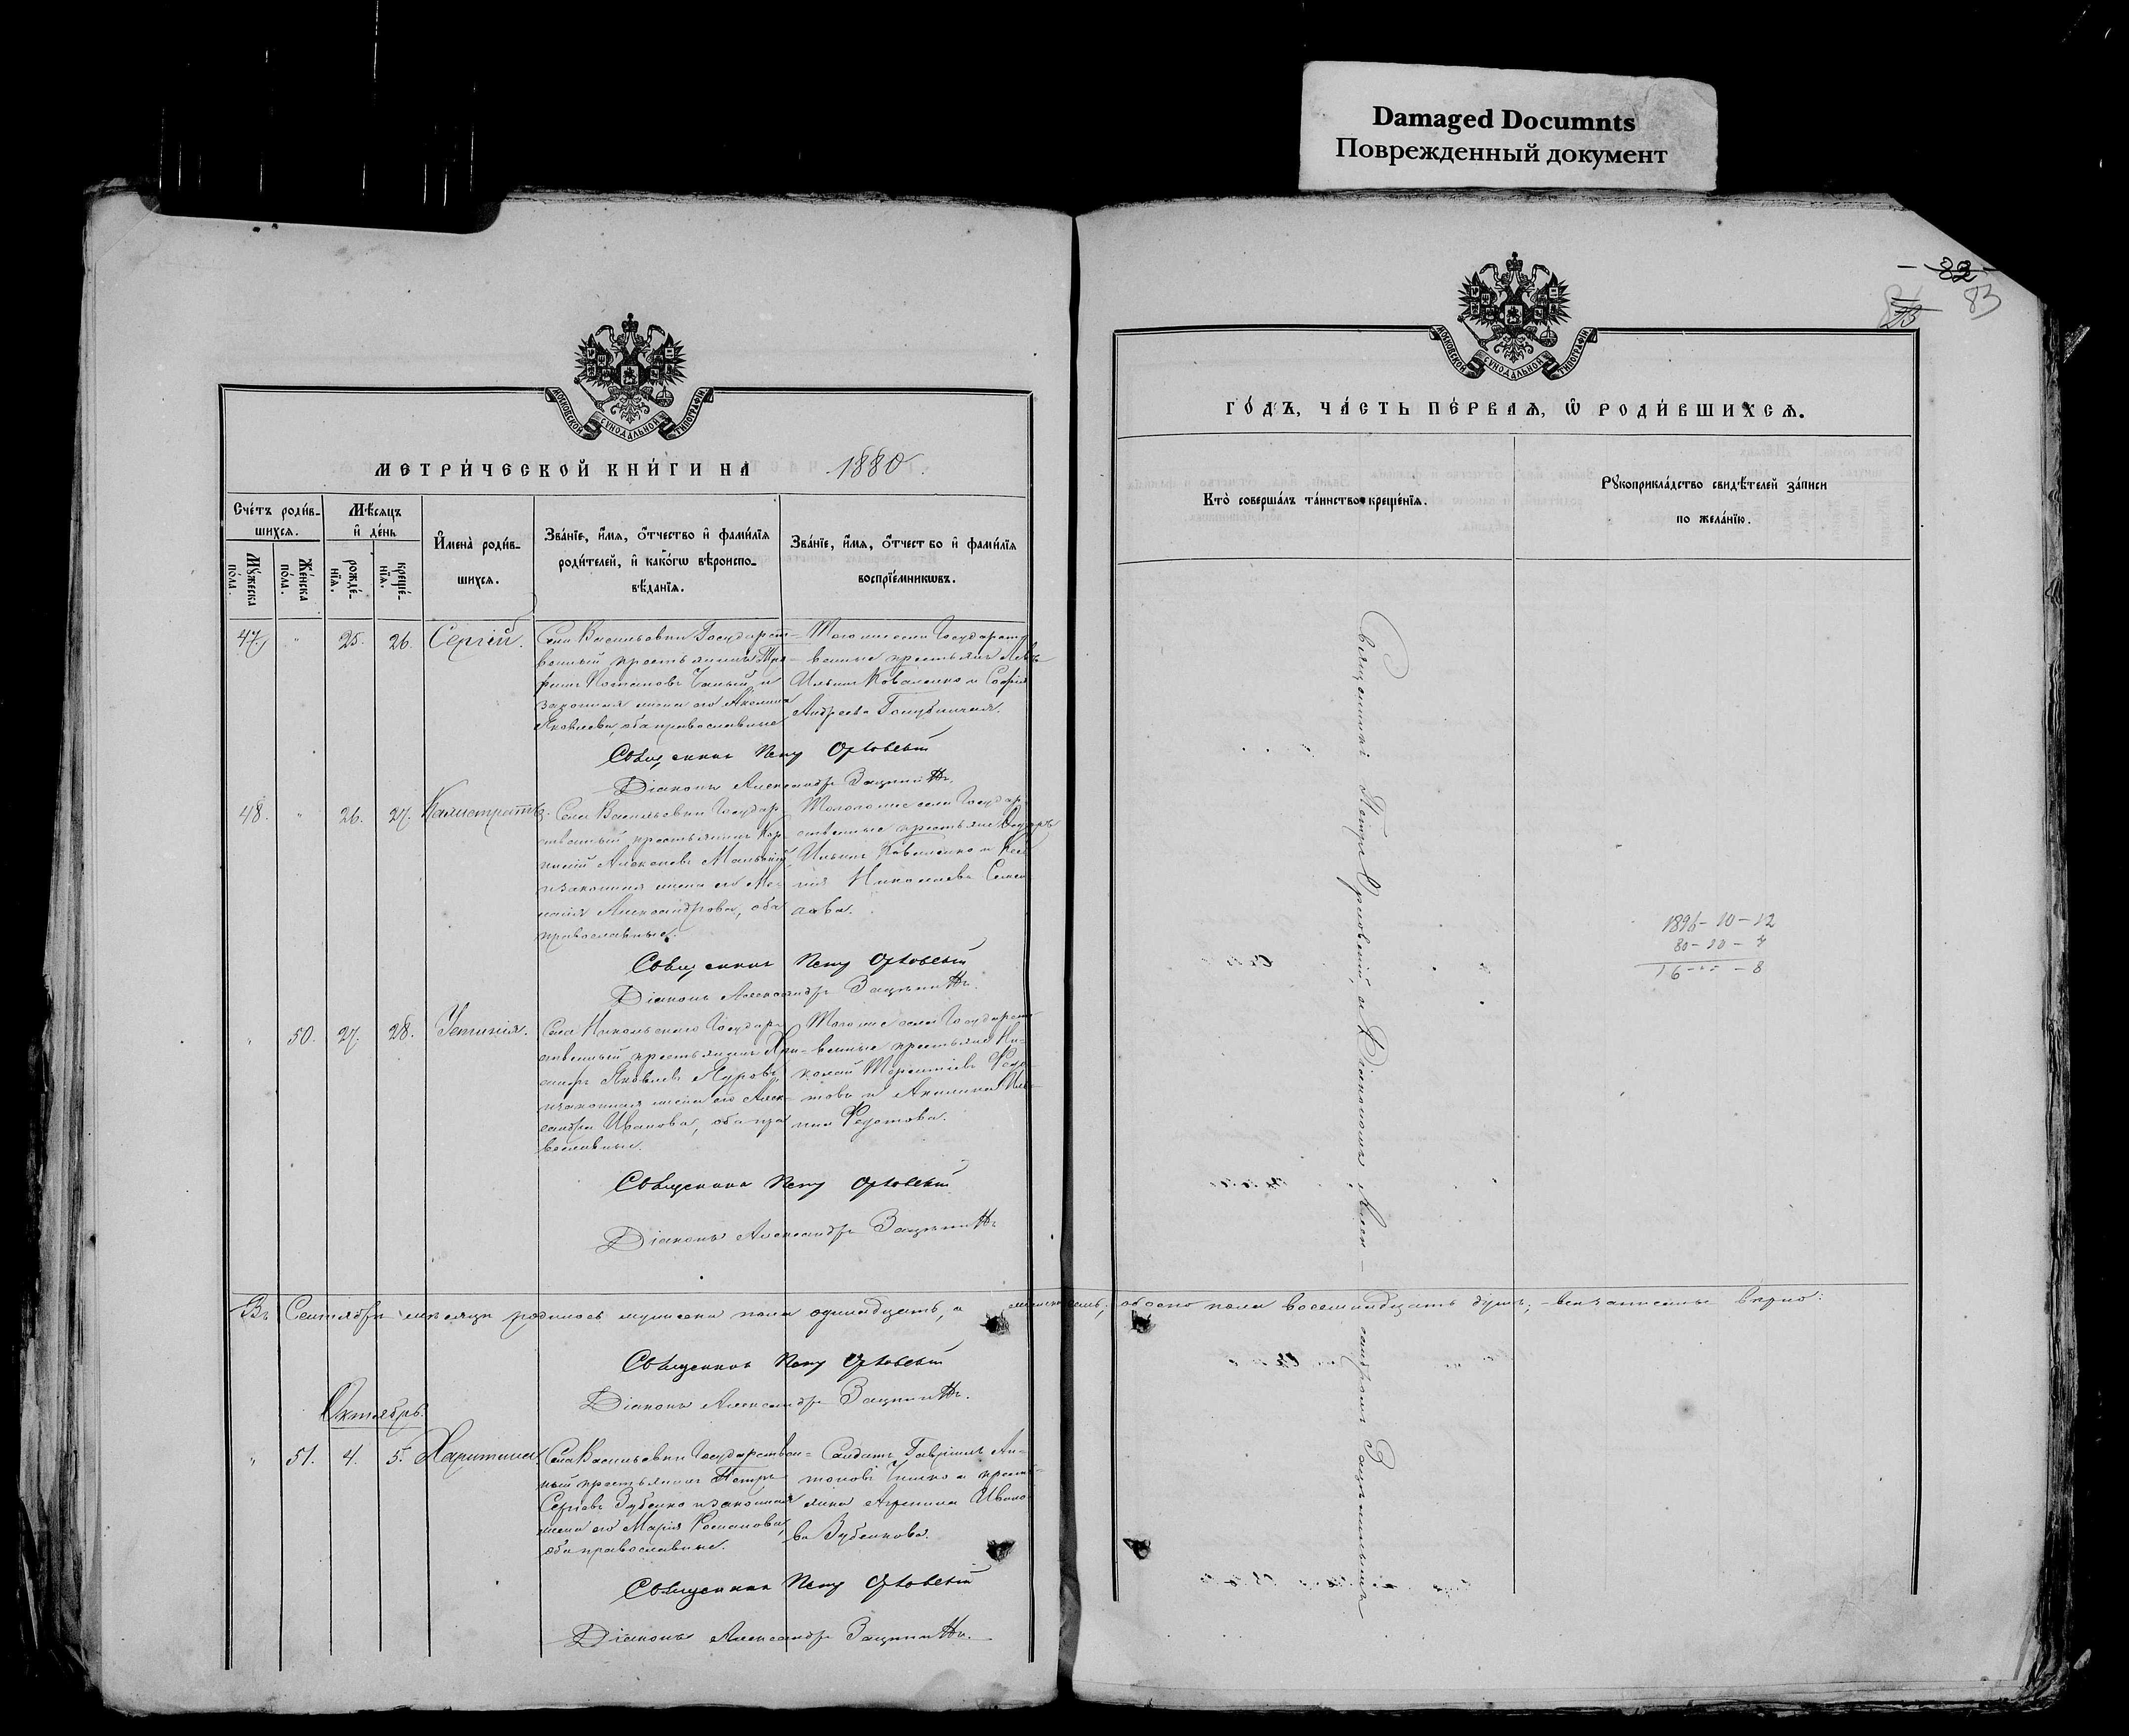 Damaged Documnts
Поврежденный документ
МОСКОВСКОЙ СѴНОДАЛЬНОЙ ТИПОГРАФІИ
МЕТРИ́ЧЕСКОЙ КНИ́ГИ НА 1880
Сче́тъ роди́в-
шихся.
Мѣ́сяцъ
и҆ де́нь
Мꙋ́жеска
по́ла.
Же́нска
по́ла.
рожде́-
нїѧ.
креще́-
нїѧ.
И҆мена̀ роди́в-
шихсѧ.
Зва́нїе, и҆́мѧ, ѻ҆́тчество и҆ фами́лїѧ
роди́телей, и҆ како́гѡ вѣроиспо-
вѣ́данїѧ.
Зва́нїе, и҆́мѧ, ѻ҆́тчество и҆ фами́лїѧ
воспрїе́мникѡвъ.
47. " 25. 26. Сергій.
Села Васильевки Государст-
венный крестьянинъ Тро-
фимъ Потаповъ и
законная жена его Акелина
Яковлева, оба православные
Тогоже села Государст
венные крестьяне
Ильинъ Коваленко и Софія
Андреева
Священникъ Петр Орловскій
Діаконъ Александръ
48. " 26. 27. Калистратъ.
Села Васильевки Государ
ственный крестьянинъ Кор
нилій Алексеевъ
и законная жена его Ме-
ланія Александрова, оба
православные.
Тогоже села Государ
ственные крестьяне Федоръ
Ильинъ Коваленко и
нія Николаева
Священникъ Петр Орловскій
Діаконъ Александръ
" 50. 27. 28. Устинія.
Села Никольскаго Государ
ственный крестьянинъ Хри-
санфъ Яковлевъ
и законная жена его Алек-
сандра Иванова, оба пра
вославные.
Тогоже села Государст
венные крестьяне Ни-
колай Терентіевъ Федо-
товъ и Акилина
Федотова.
Священникъ Петр Орловскій
Діаконъ Александръ
Въ Сентябрѣ мѣсяцѣ родилось мужеска пола одинадцать, а женска семь, обоего пола восемнадцать душъ; всѣ записаны вѣрно:
Священникъ Петр Орловскій
Діаконъ Александръ
Октябрь.
" 51. 4. 5. Харитина.
Села Васильевки Государствен-
ный крестьянинъ Петръ
Сергѣевъ Зубенко и законная
жена его Марія Романова,
оба православные.
Солдатъ Гавріилъ Ан-
тоновъ и кресть
янка Агрипина Ивано
ва Зубенкова.
Священникъ Петр Орловскій
Діаконъ Александръ
82
83
МОСКОВСКОЙ СѴНОДАЛЬНОЙ ТИПОГРАФІИ
ГО́ДЪ, ЧА́СТЬ ПЕ́РВАѦ, Ѽ РОДИ́ВШИХСѦ.
Кто̀ соверша́лъ та́инство креще́нїѧ.
Рꙋкоприкла́дство свидѣ́телей за́писи
по жела́нїю.
Священникъ Петръ Орловскій, и Діакономъ Алек-
сандромъ
1896-10-12
80-10-4
16-"-8